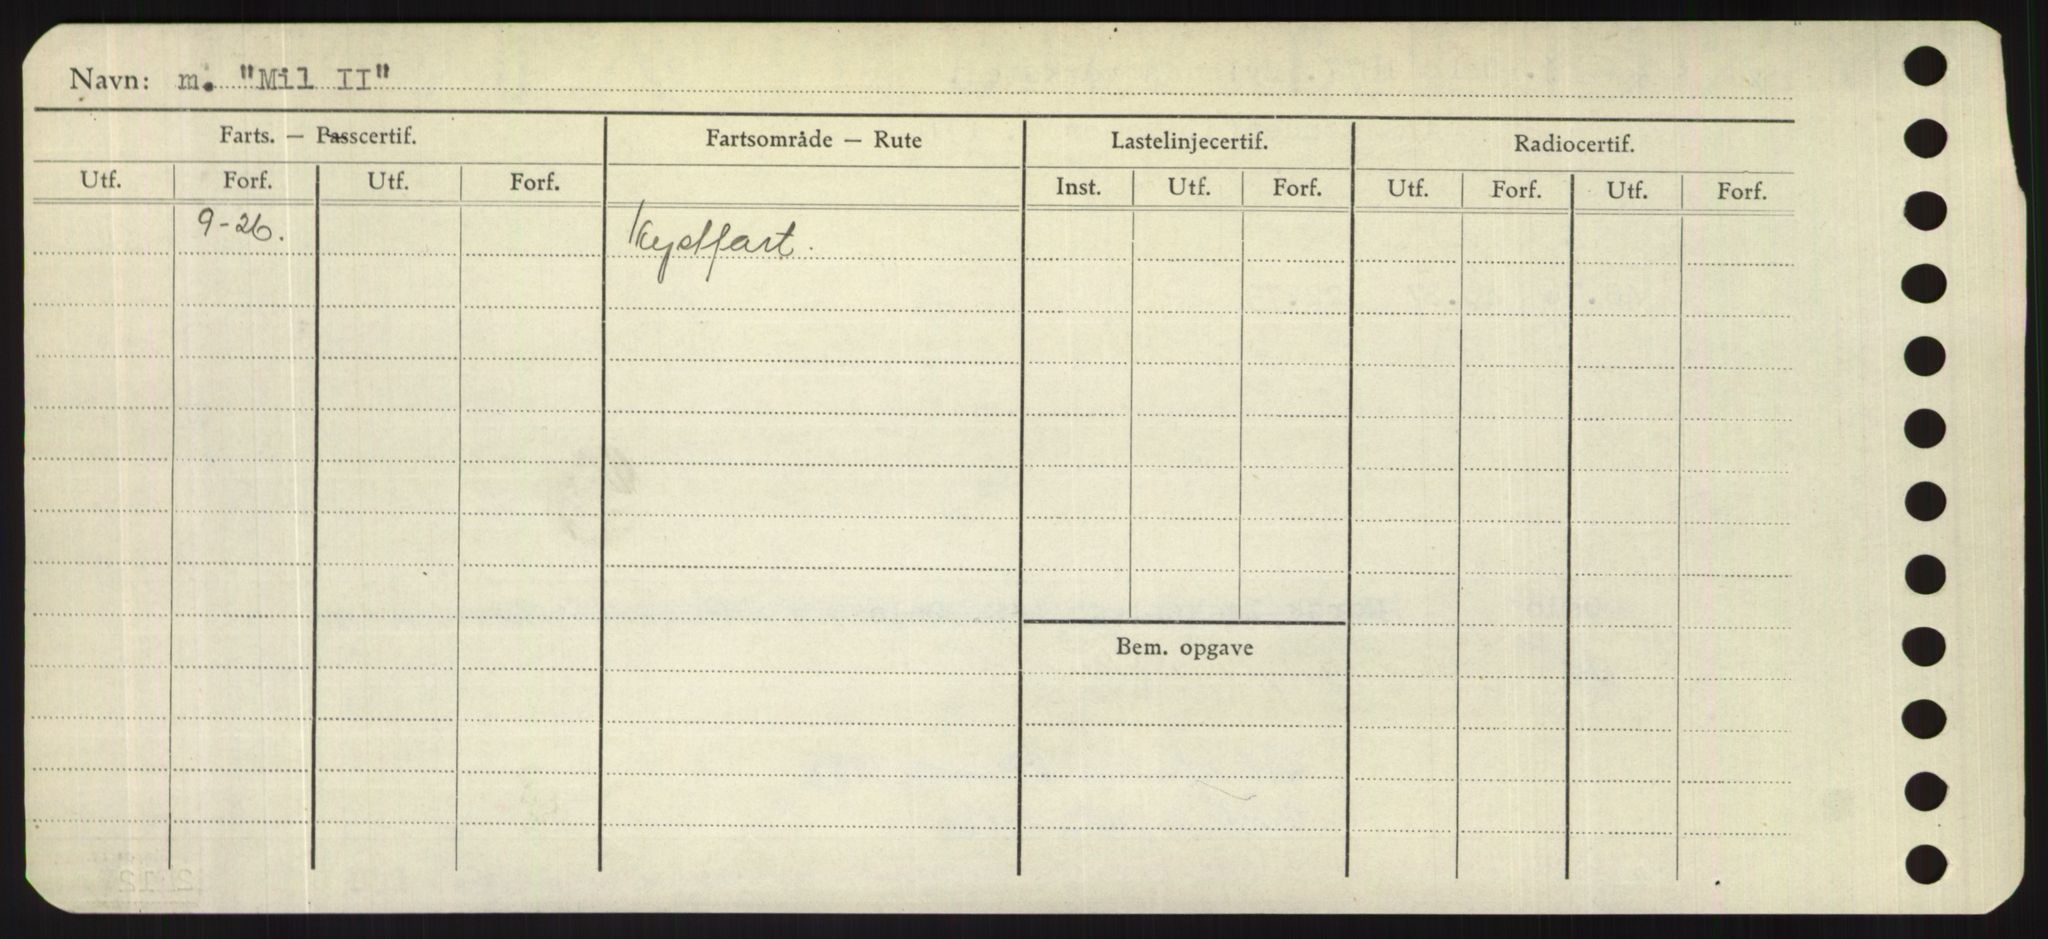 Navn: m. "Mil II"
Farts. — Passcertif. Fartsområde — Rute Lastelinjecertif. Radiocertif.
Utf. Forf. Utf. Forf. Inst. Utf. Forf. Utf. Forf. Utf. Forf.
9-26. Kystfart.
Bem. opgave